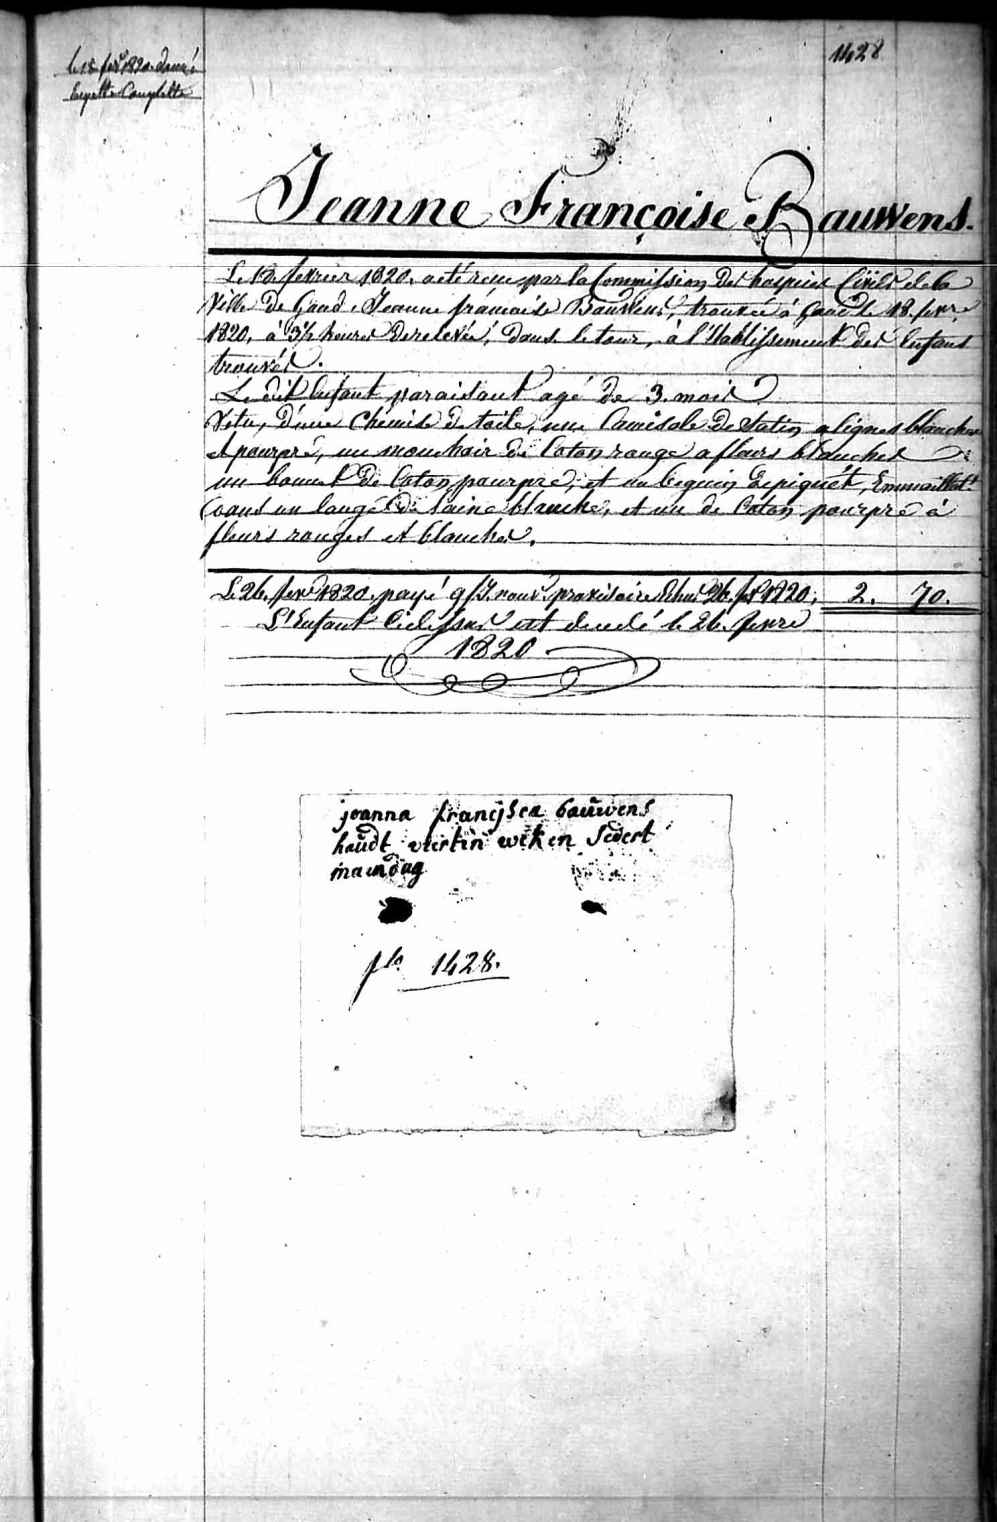 1428
le 18 fevr 1820. donné
Layette Complette
Jeanne Françoise Bauwens.
Le 18 fevrier 1820. a eté recu par la Commission des hospices Civils de la
Ville de Gand, Jeanne françoise Bauwens, trouvée à Gand le 18. fevre
1820, à 3½ heures de relevée, dans le tour, à l'Etablissement des Enfans
trouvés.
Le dit Enfant paraisant agé de 3. mois
Vetu, d'une Chemise de toile, une Camisole de Satin a lignes blanches
et pourpre, un mouchoir de Coton rouge a fleurs blanches
un bonnet de Coton pourpre, et un beguin de piquét, Emmailloté
dans un lange de laine blanche, et un de Coton pourpre à
fleurs rouges et blanches.
Le 26. fevr 1820. payé nourr provisoire Echu 26. fr 1820. 2. 70.
L'Enfant Cidessus est decedé le 26. fevre
1820
joanna francijsca bauwens
haudt viertin weken Sedert
maendag
flo. 1428.